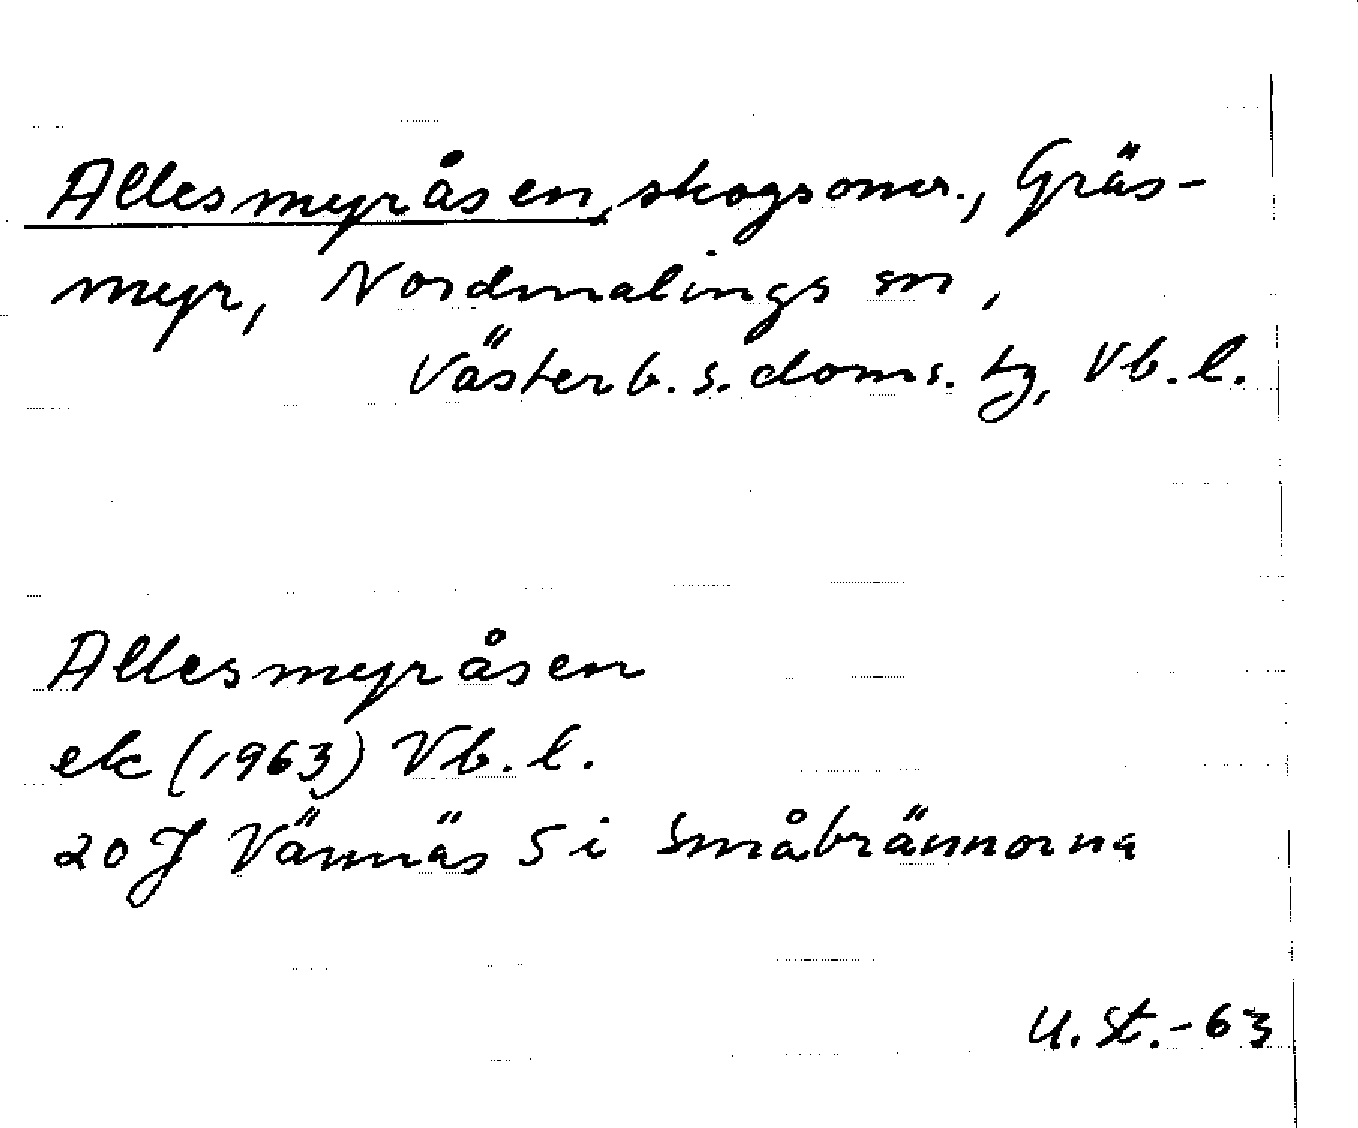 Allesmyråsen, skogsomr., Gräs-
myr, Nordmalings sn,
Västerb. s. doms. tg, Vb. l.
Allesmyråsen
ek (1963) Vb. l.
20 J Vännäs 5 i Småbrännorna
U. St. - 63